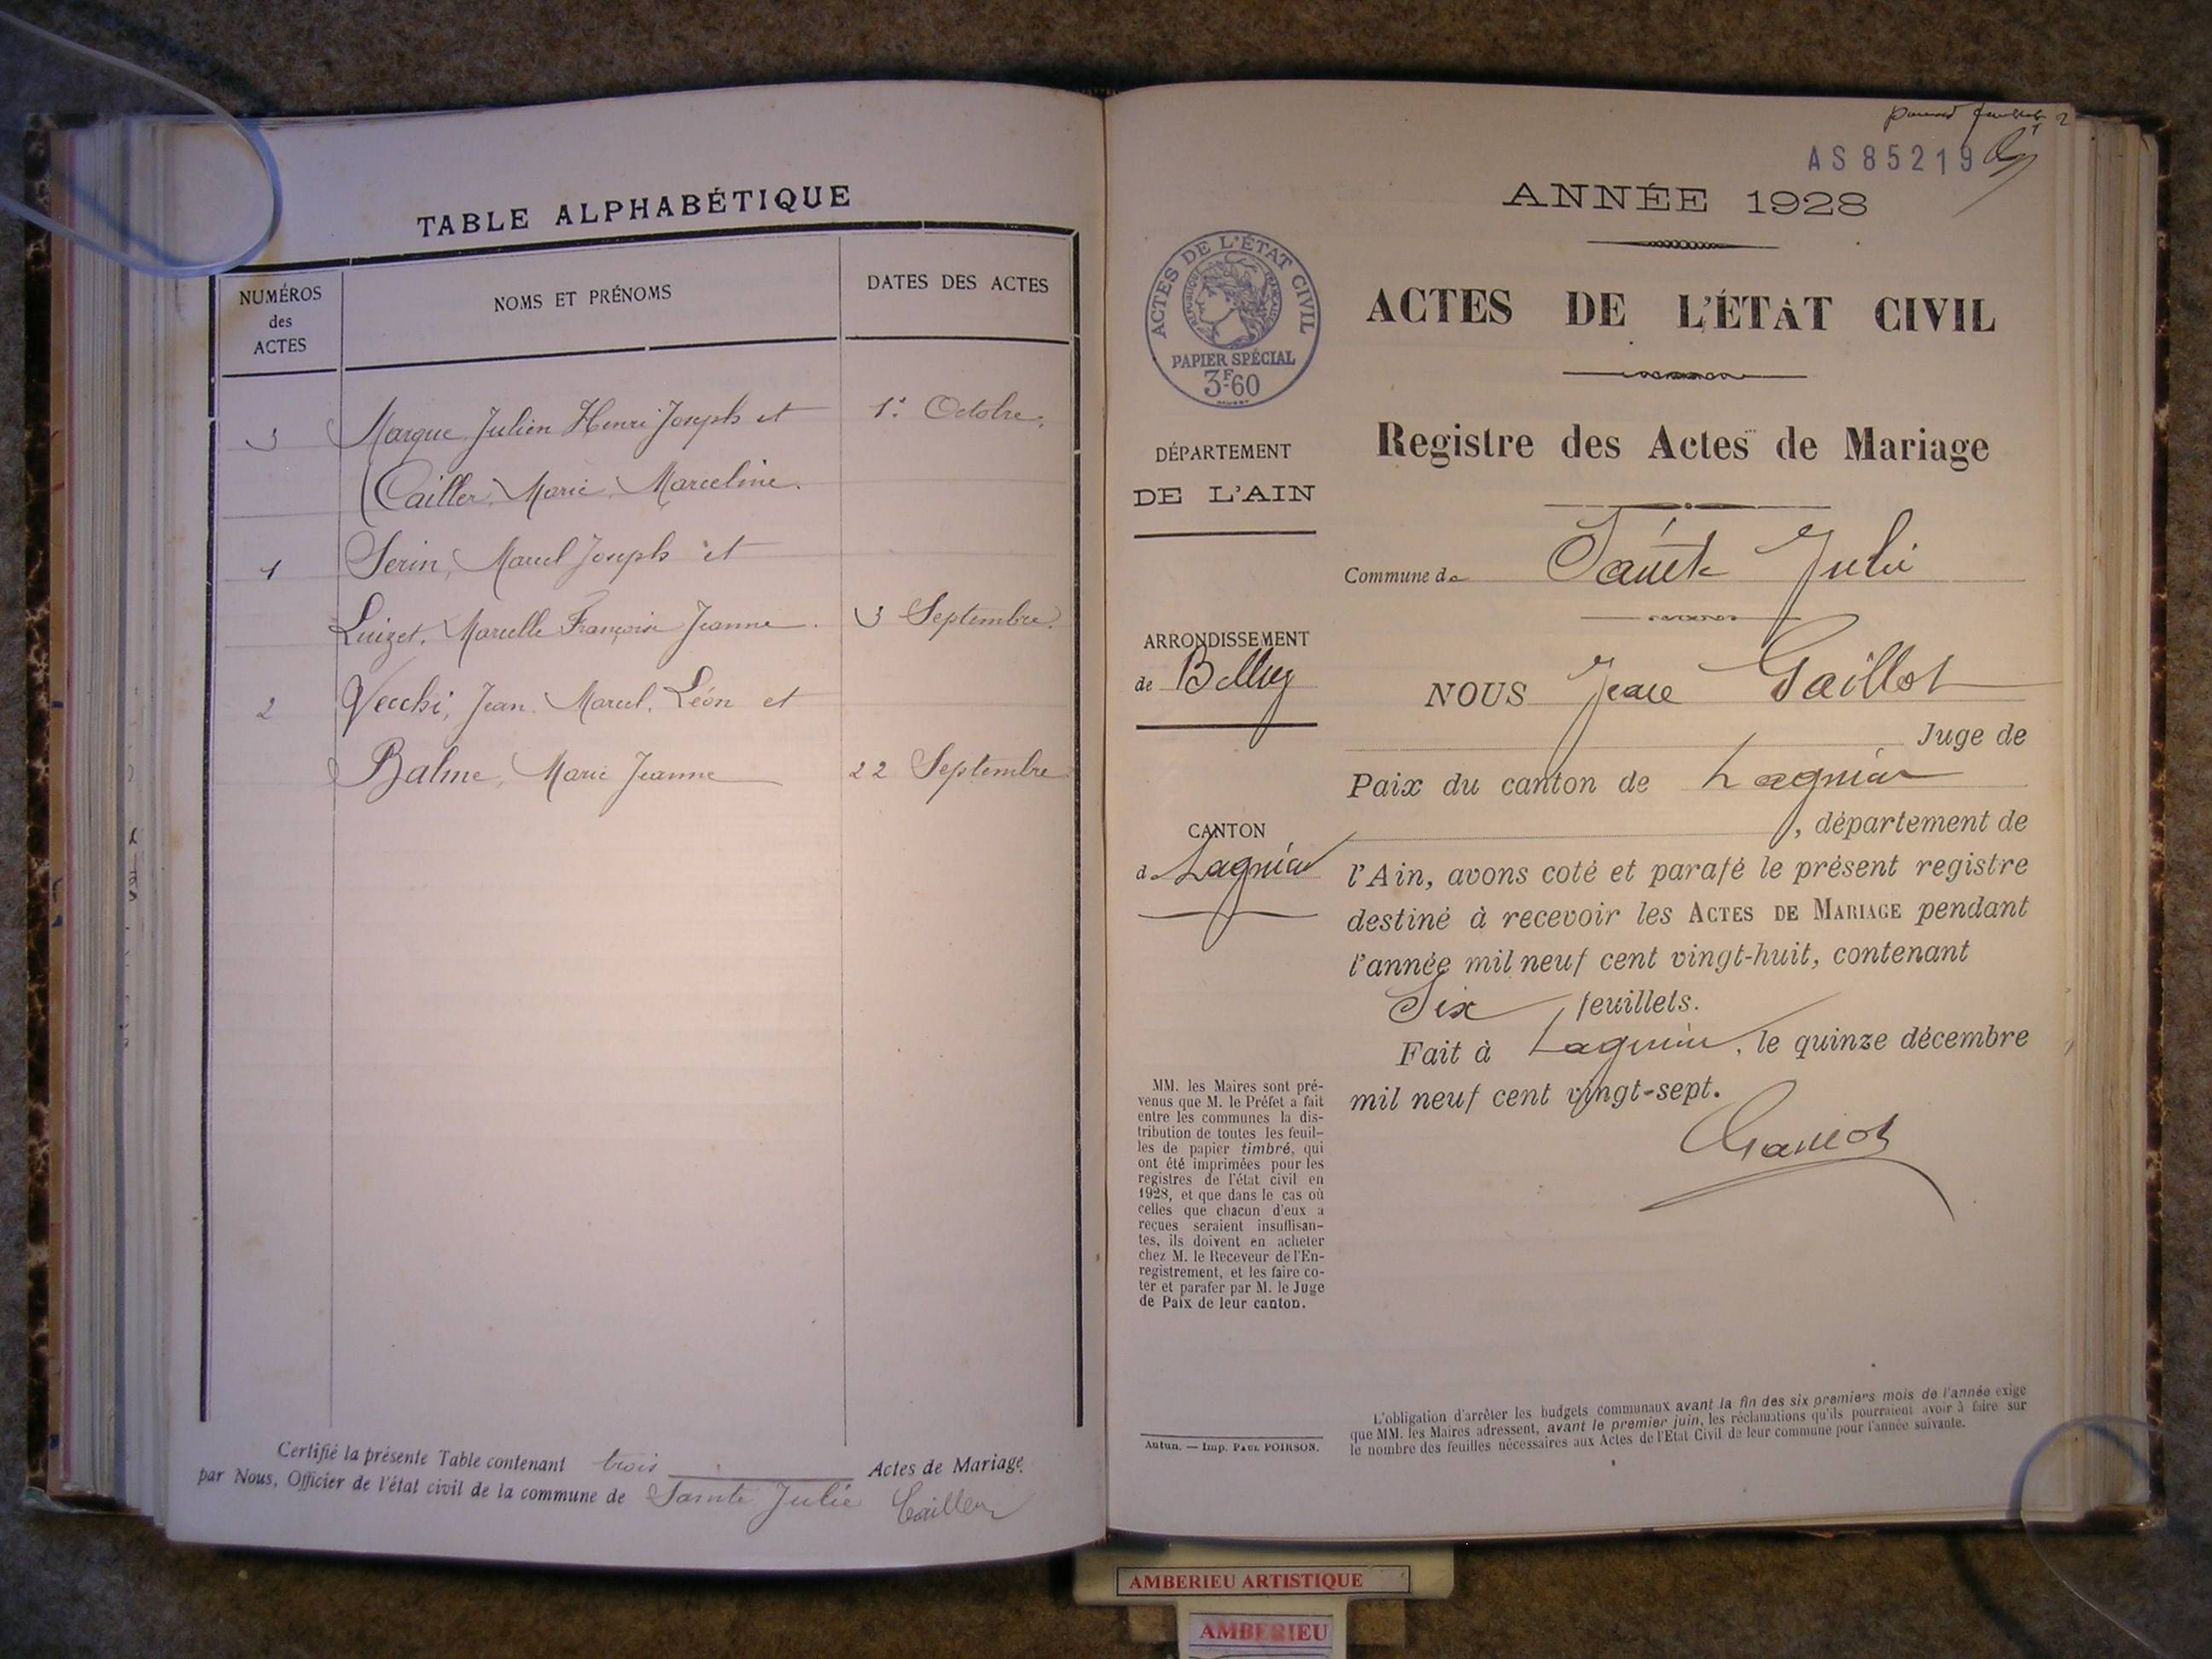 TABLE ALPHABÉTIQUE
NUMÉROS
des
ACTES
NOMS ET PRÉNOMS
DATES DES ACTES
3 Marque, Julien Henri Joseph et 1er Octobre.
Cailler, Marie, Marceline.
1 Serin, Marcel Joseph et
Luizet, Marcelle Françoise Jeanne. 3 Septembre.
2 Vecchi, Jean Marcel, Léon et
Balme, Marie Jeanne 22 Septembre
Certifié la présente Table contenant trois Actes de Mariage
par Nous, Officier de l'état civil de la commune de Sainte Julie Cailler
AS 85219
ANNÉE 1928
ACTES DE L'ÉTAT CIVIL
RÉPUBLIQUE FRANÇAISE
PAPIER SPÉCIAL
3F60
ACTES DE L'ÉTAT CIVIL
Registre des Actes de Mariage
DÉPARTEMENT
DE L'AIN
ARRONDISSEMENT
de Belley
CANTON
de Lagnieu
MM. les Maires sont pré-
venus que M. le Préfet a fait
entre les communes la dis-
tribution de toutes les feuil-
les de papier timbré, qui
ont été imprimées pour les
registres de l'état civil en
1928, et que dans le cas où
celles que chacun d'eux a
reçues seraient insuffisan-
tes, ils doivent en acheter
chez M. le Receveur de l'En-
registrement, et les faire co-
ter et parafer par M. le Juge
de Paix de leur canton.
Autun. — Imp. PAUL POIRSON.
Commune de Sainte Julie
NOUS Jean Gaillot
Juge de
Paix du canton de Lagnieu
, département de
l'Ain, avons coté et parafé le présent registre
destiné à recevoir les ACTES DE MARIAGE pendant
l'année mil neuf cent vingt-huit, contenant
Six feuillets.
Fait à Lagnieu, le quinze décembre
mil neuf cent vingt-sept.
Gaillot
L'obligation d'arrêter les budgets communaux avant la fin des six premiers mois de l'année exige
que MM. les Maires adressent, avant le premier juin, les réclamations qu'ils pourraient avoir à faire sur
le nombre des feuilles nécessaires aux Actes de l'Etat Civil de leur commune pour l'année suivante.
AMBERIEU ARTISTIQUE
AMBERIEU